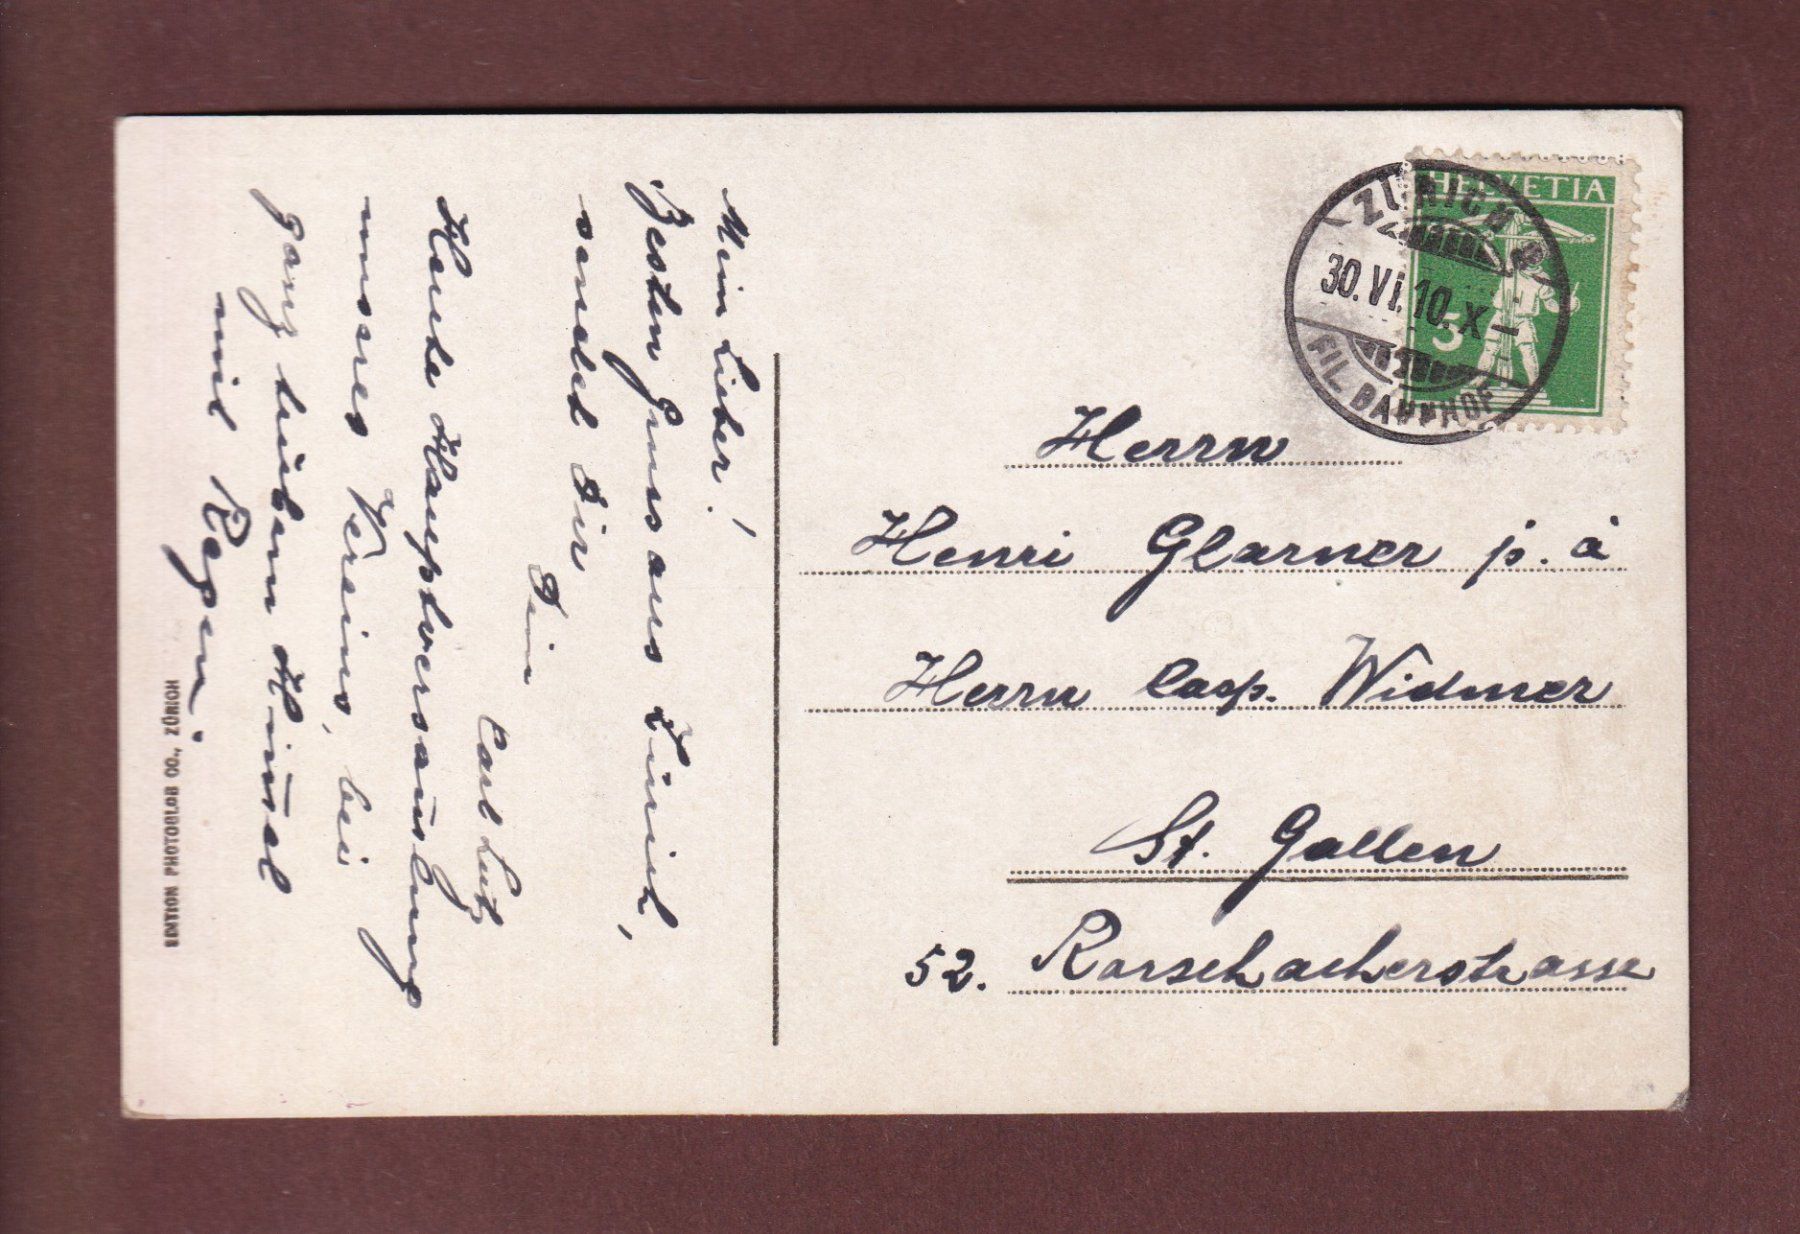 Mein Lieber!
Besten Gruss aus Zürich,
sendet Dir
Dein
Carl Lutz
Heute Hauptversam̄lung
unseres Vereins, bei
ganz trübem Him̄el
mit Regen.
EDITION PHOTOGLOB CO., ZÜRICH
HELVETIA
5
ZÜRICH
30.VI.10.X–
FIL. BAHNHOF
Herrn
Henri Glarner p. à
Herrn Casp. Widmer
St. Gallen
52. Rorschacherstrasse